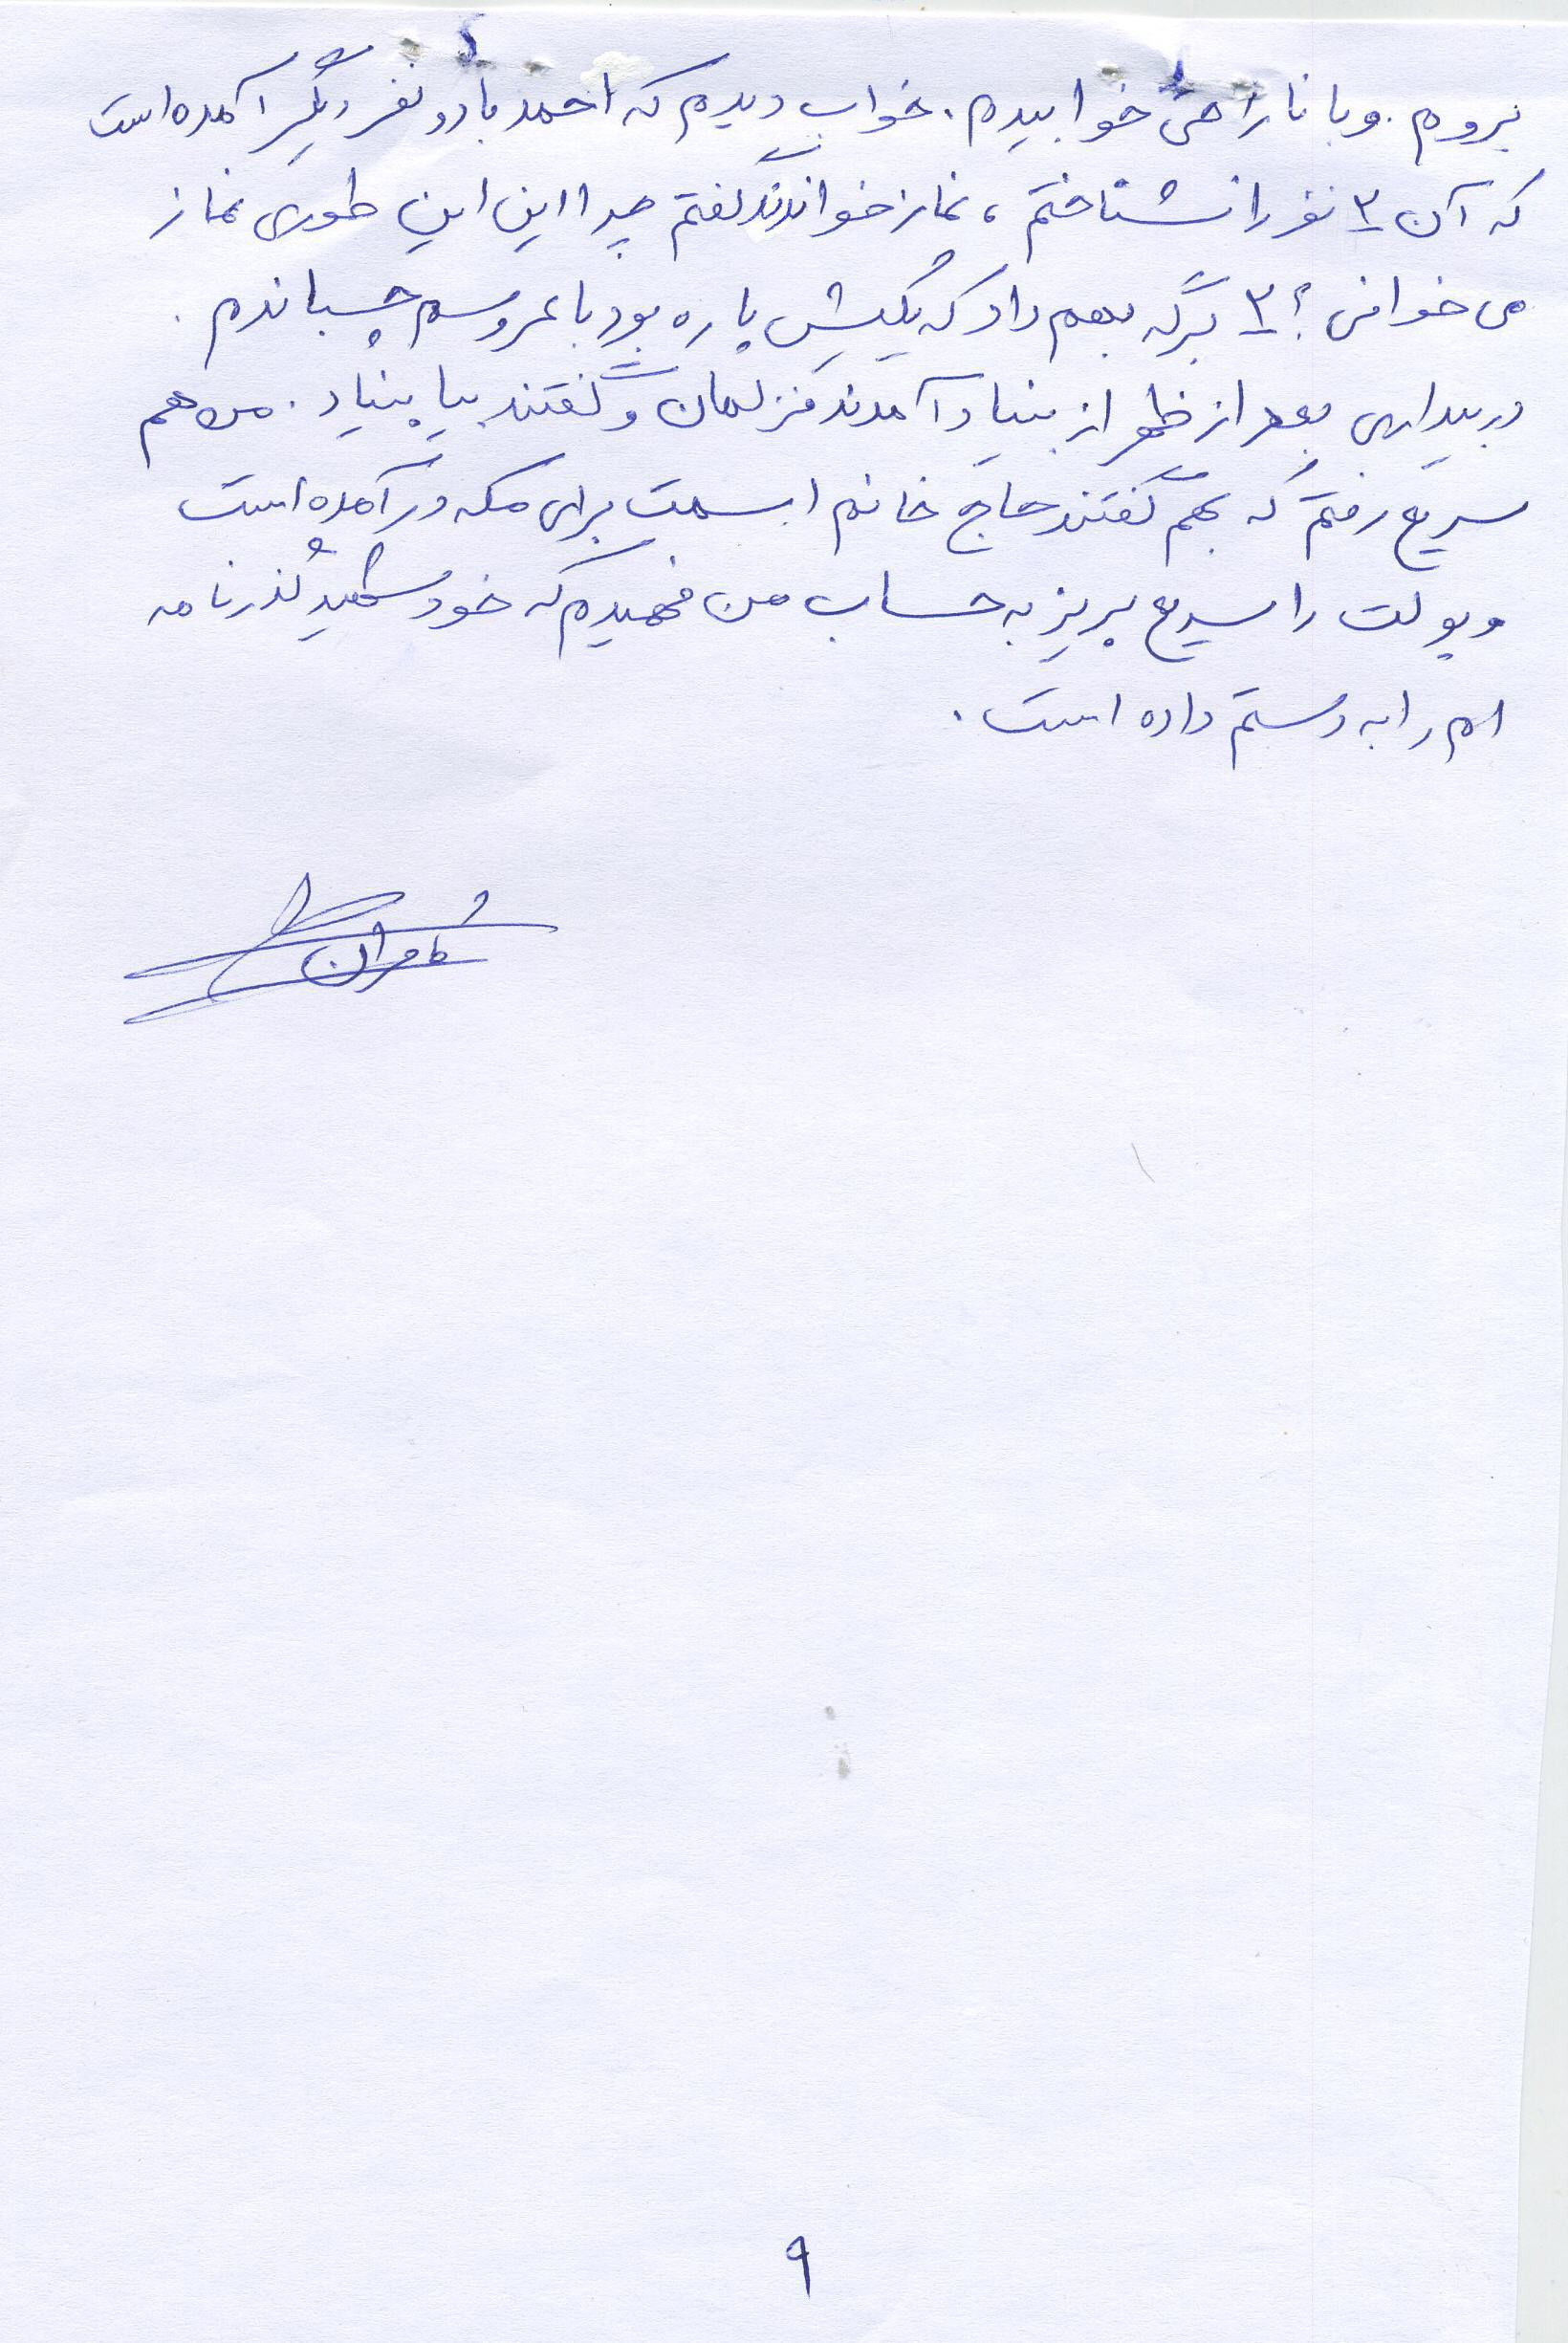 بروم. و با ناراحتی خوابیدم. خواب دیدم که احمد با دو نفر دیگر آمده است
که آن ۲ نفر را نشناختم، نماز خواندند گفتم چرا این این طوری نماز
می خوانی؟ ۳ برگه بهم داد که یکیش پاره بود با عروسم چسباندم.
در بیداری بعد از ظهر از بنیاد آمدند منزلمان و گفتند بیا بنیاد. من هم
سریع رفتم که بهم گفتند حاج خانم اسمت برای مکه در آمده است
و پولت را سریع بریز به حساب من فهمیدم که خود شهید گذرنامه
ام را به دستم داده است.
کامران
۹